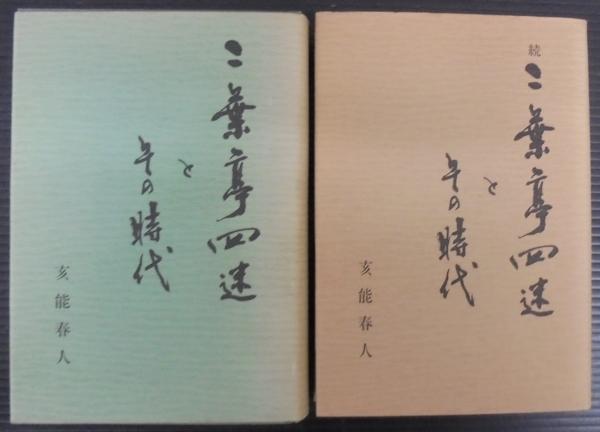 二葉亭四迷
と
その時代
亥能春人
続
二葉亭四迷
と
その時代
亥能春人